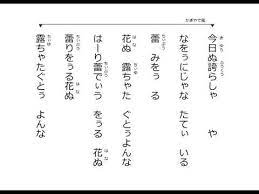 かぎやで風
今日ぬ誇らしゃ や
なをぅにじゃな たてぃ いる
蕾 みをぅ る
花ぬ 露ちゃた ぐとぅよんな
はーり蕾でぃう をぅる 花ぬ
蕾りをぅる花ぬ
露ちゃたぐとぅ よんな